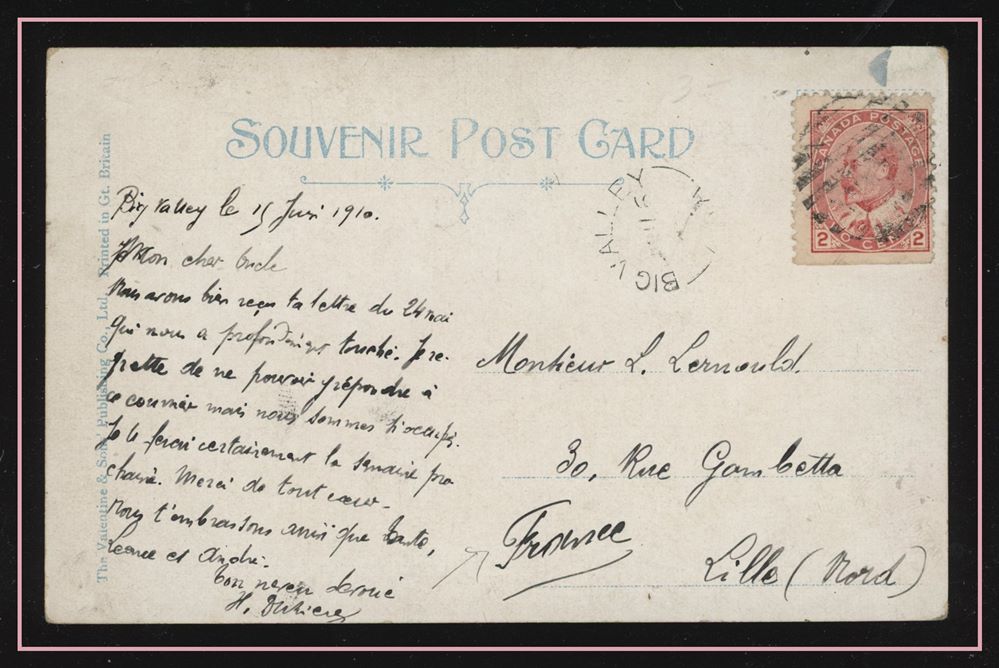 SOUVENIR POST CARD
The Valentine & Sons' Publishing Co., Ltd. Printed in Gt. Britain
CANADA POSTAGE
2 CENTS 2
BIG VALLEY
Big Valley le 15 Juin 1910.
Mon cher Oncle
Nous avons bien reçu ta lettre du 24 mai
qui nous a profondément touché. Je re-
grette de ne pouvoir répondre à
ce courrier mais nous sommes
Je le ferai certainement la semaine pro
chaine. Merci de tout cœur.
Nous t'embrassons ainsi que tante,
Léonce et André.
Ton neveu dévoué
H.
Monsieur L. Lernould.
30, Rue Gambetta
France
Lille (Nord)